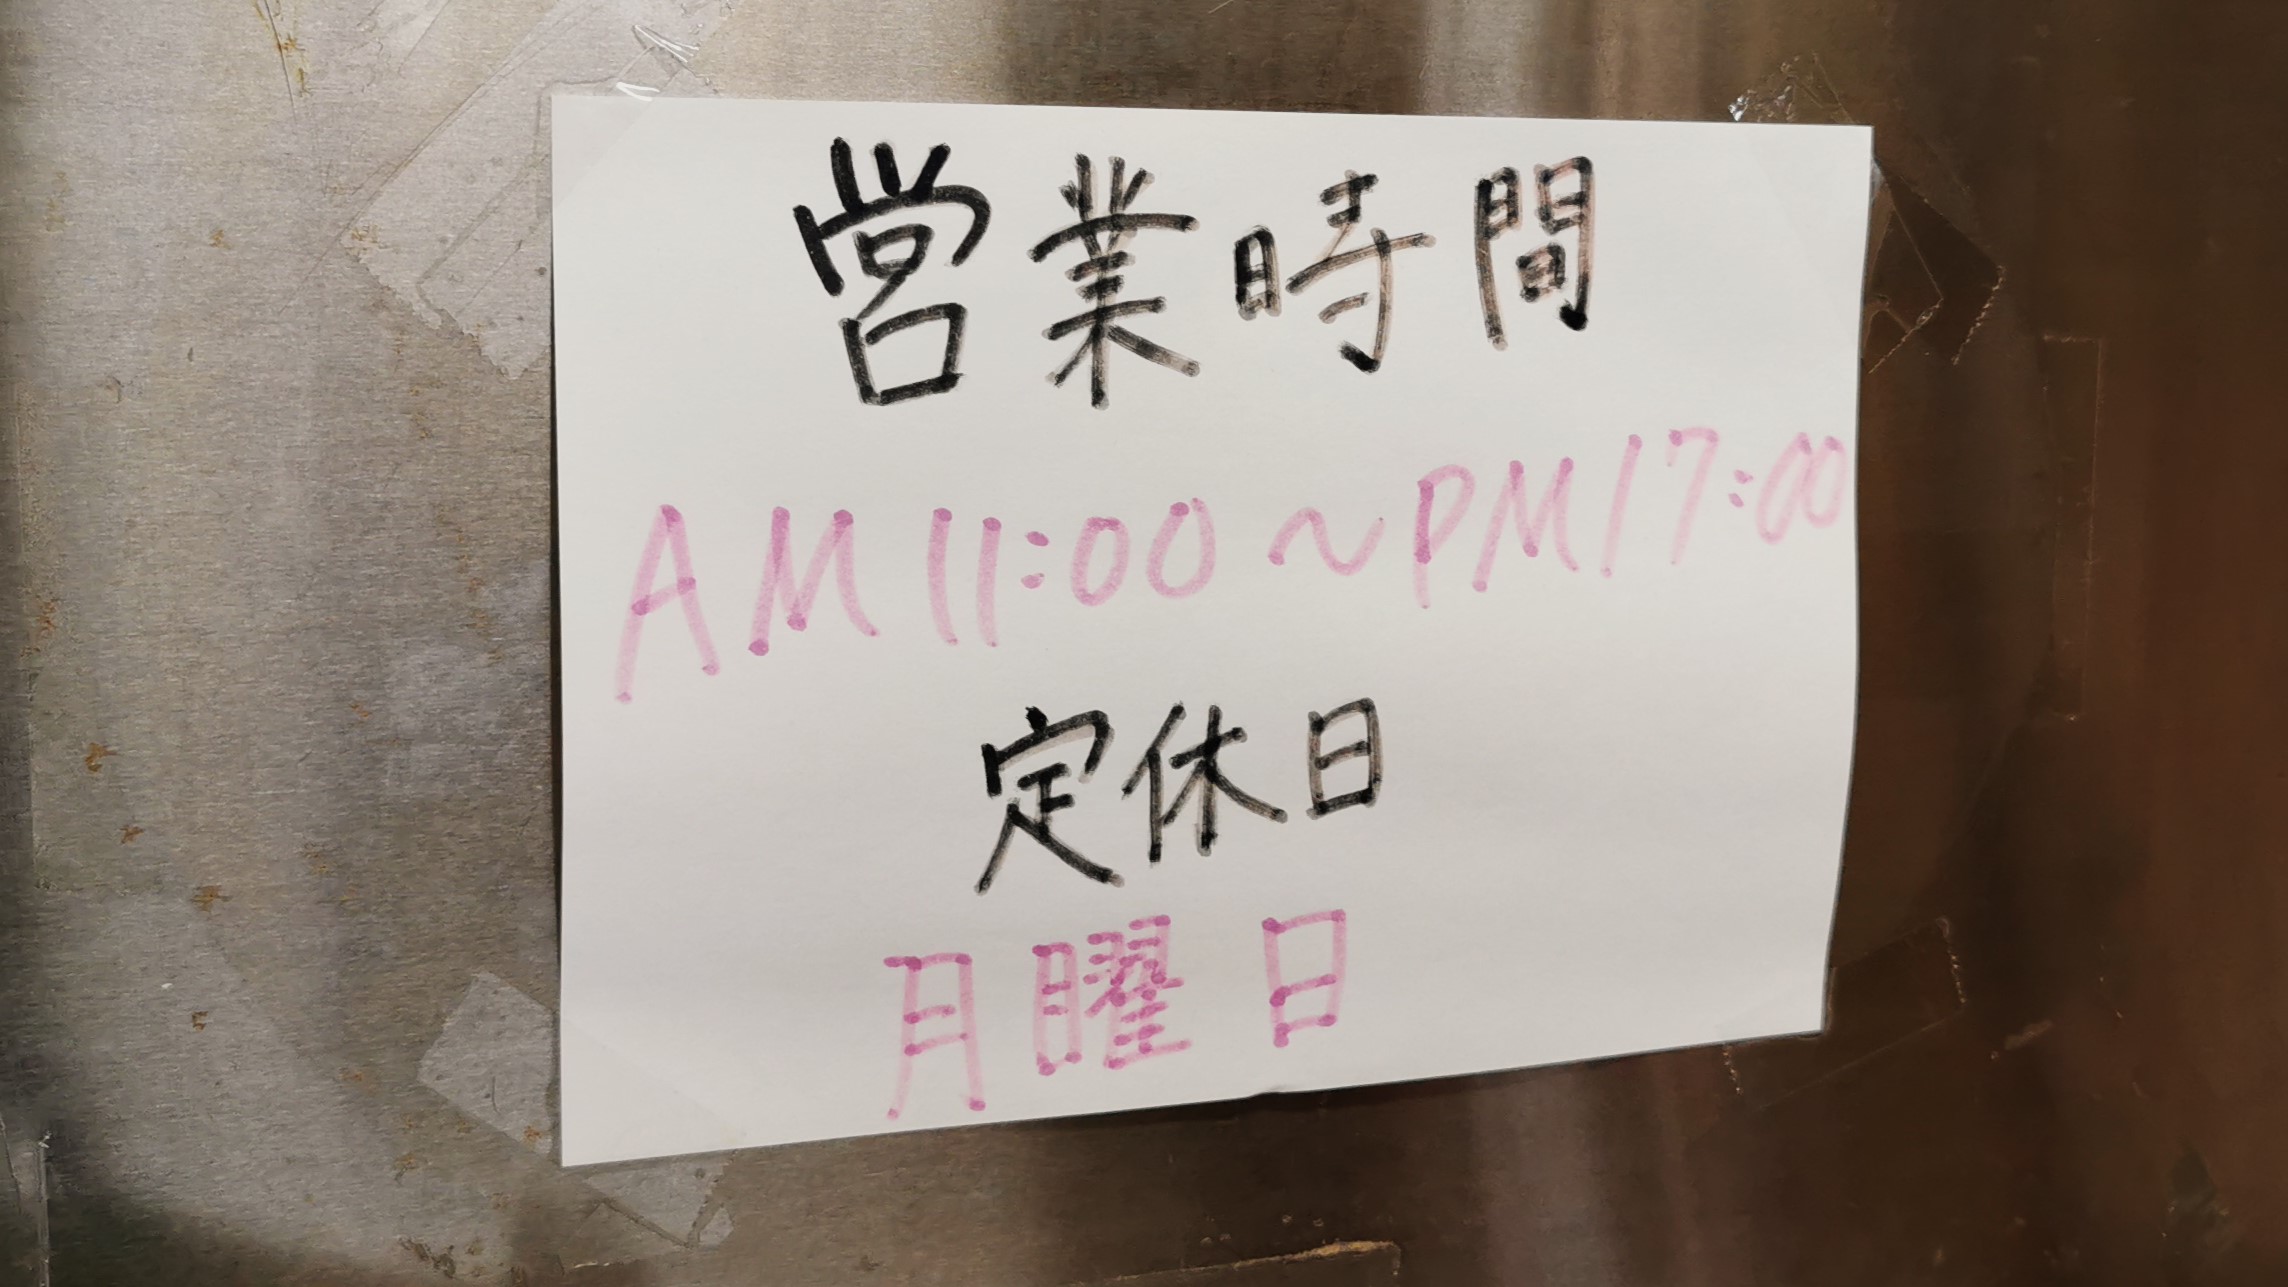 営業時間
AM11:00～PM17:00
定休日
月曜日